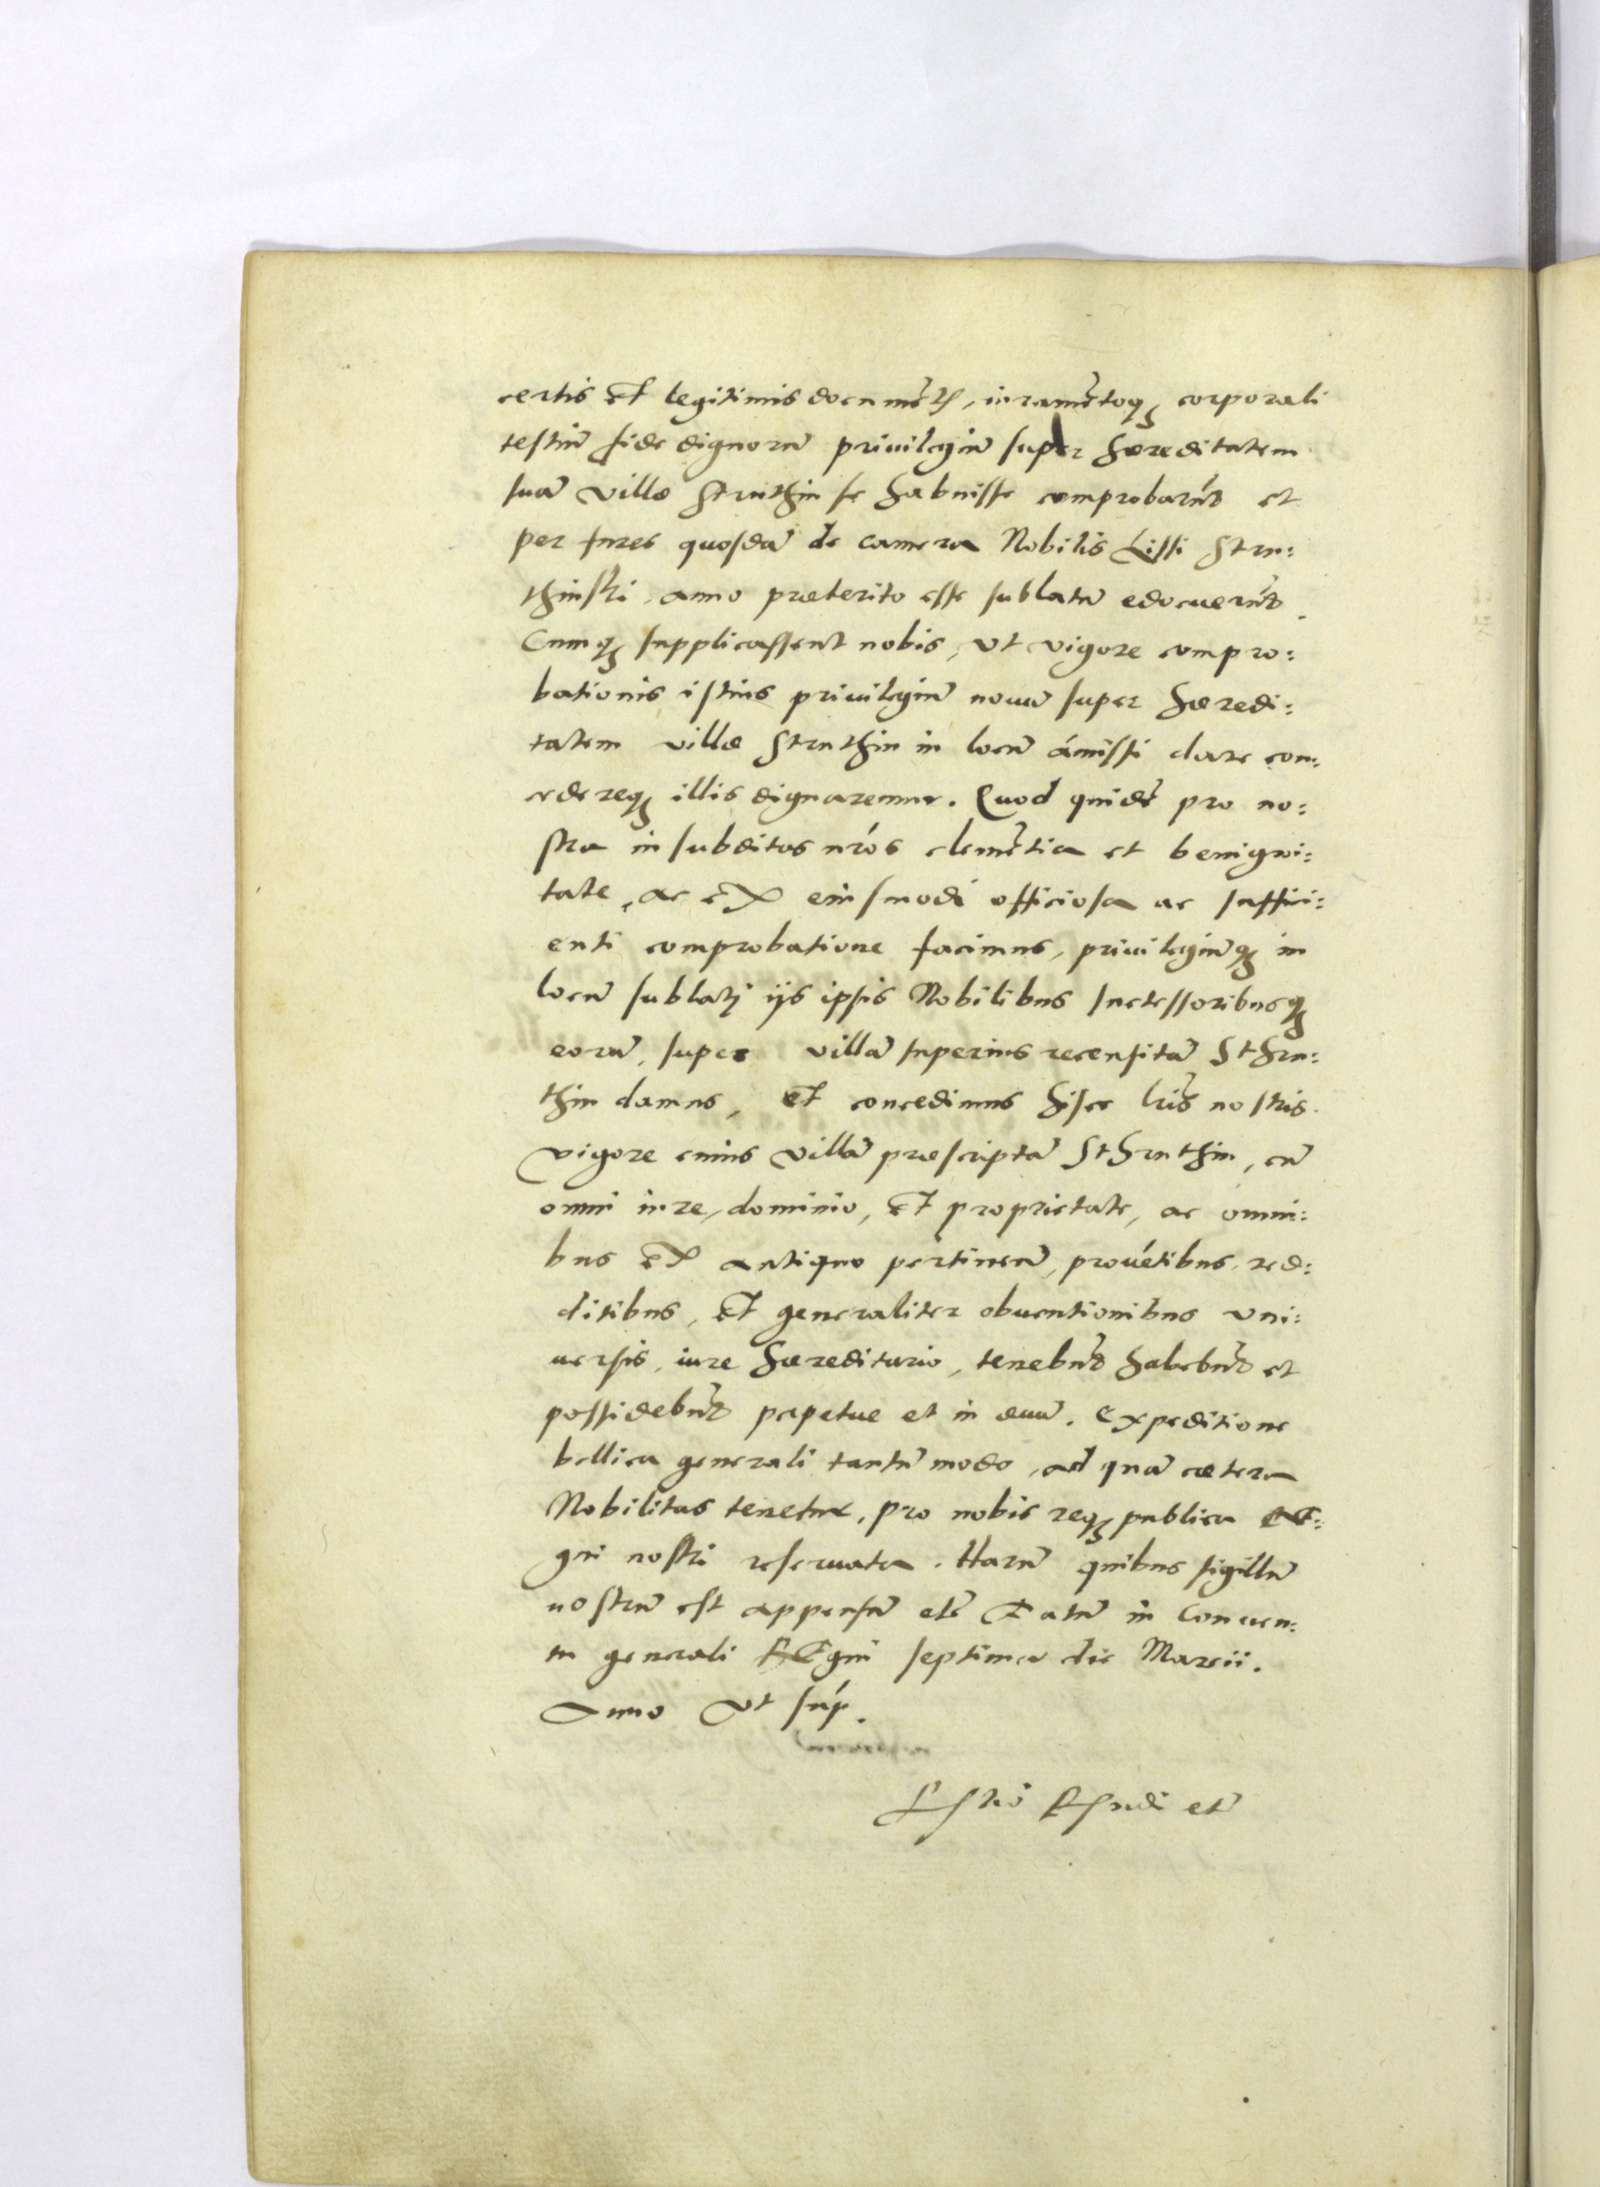 certis Et legitimis documẽtis, iuramẽtoq; corporali
testiũ fide dignorũ priuilegiũ super hæreditatem
suã villæ Struthin se habuisse comprobarũt et
per fures quosdã de camera Nobilis Lissi Stru:
thinski, anno præterito esse sublatũ edocuerũt.
Cumq; supplicassent nobis, vt vigore compro:
bationis istius priuilegiũ nouũ super hæredi:
tatem villæ Struthin in locũ ámissi dare con:
cedereq; illis dignaremur. Quod quidẽ pro no:
stra in subditos nr̃os clemẽtia et benigni:
tate, ac eX eiusmodi officiosa ac suffici:
enti comprobatione facimus, priuilegiũq; in
locũ sublati ijs ipsis Nobilibus Successoribusq;
eorũ, super villã superius recensitã Sthru:
thin damus, Et concedimus hisce lr̃is nostris.
vigore cuius villã præscriptã Sthruthin, cũ
omni iure, dominio, Et proprietate, ac omni:
bus eX antiquo pertinen̄, prouẽtibus, red:
ditibus, Et generaliter obuentionibus vni:
uersis, iure hæreditario, tenebũt habebũt et
possidebũt ppetue et in æuũ. Expeditione
bellica generali tantũ modo, ad quã cætera
Nobilitas tenetur, pro nobis req; publica RE:
gni nostri reseruata. Harũ quibus sigillũ
nostrũ est appensũ etc̃ Datũ in Conuen:
tu generali REgni septima die Marcii.
Anno vt sup̃.